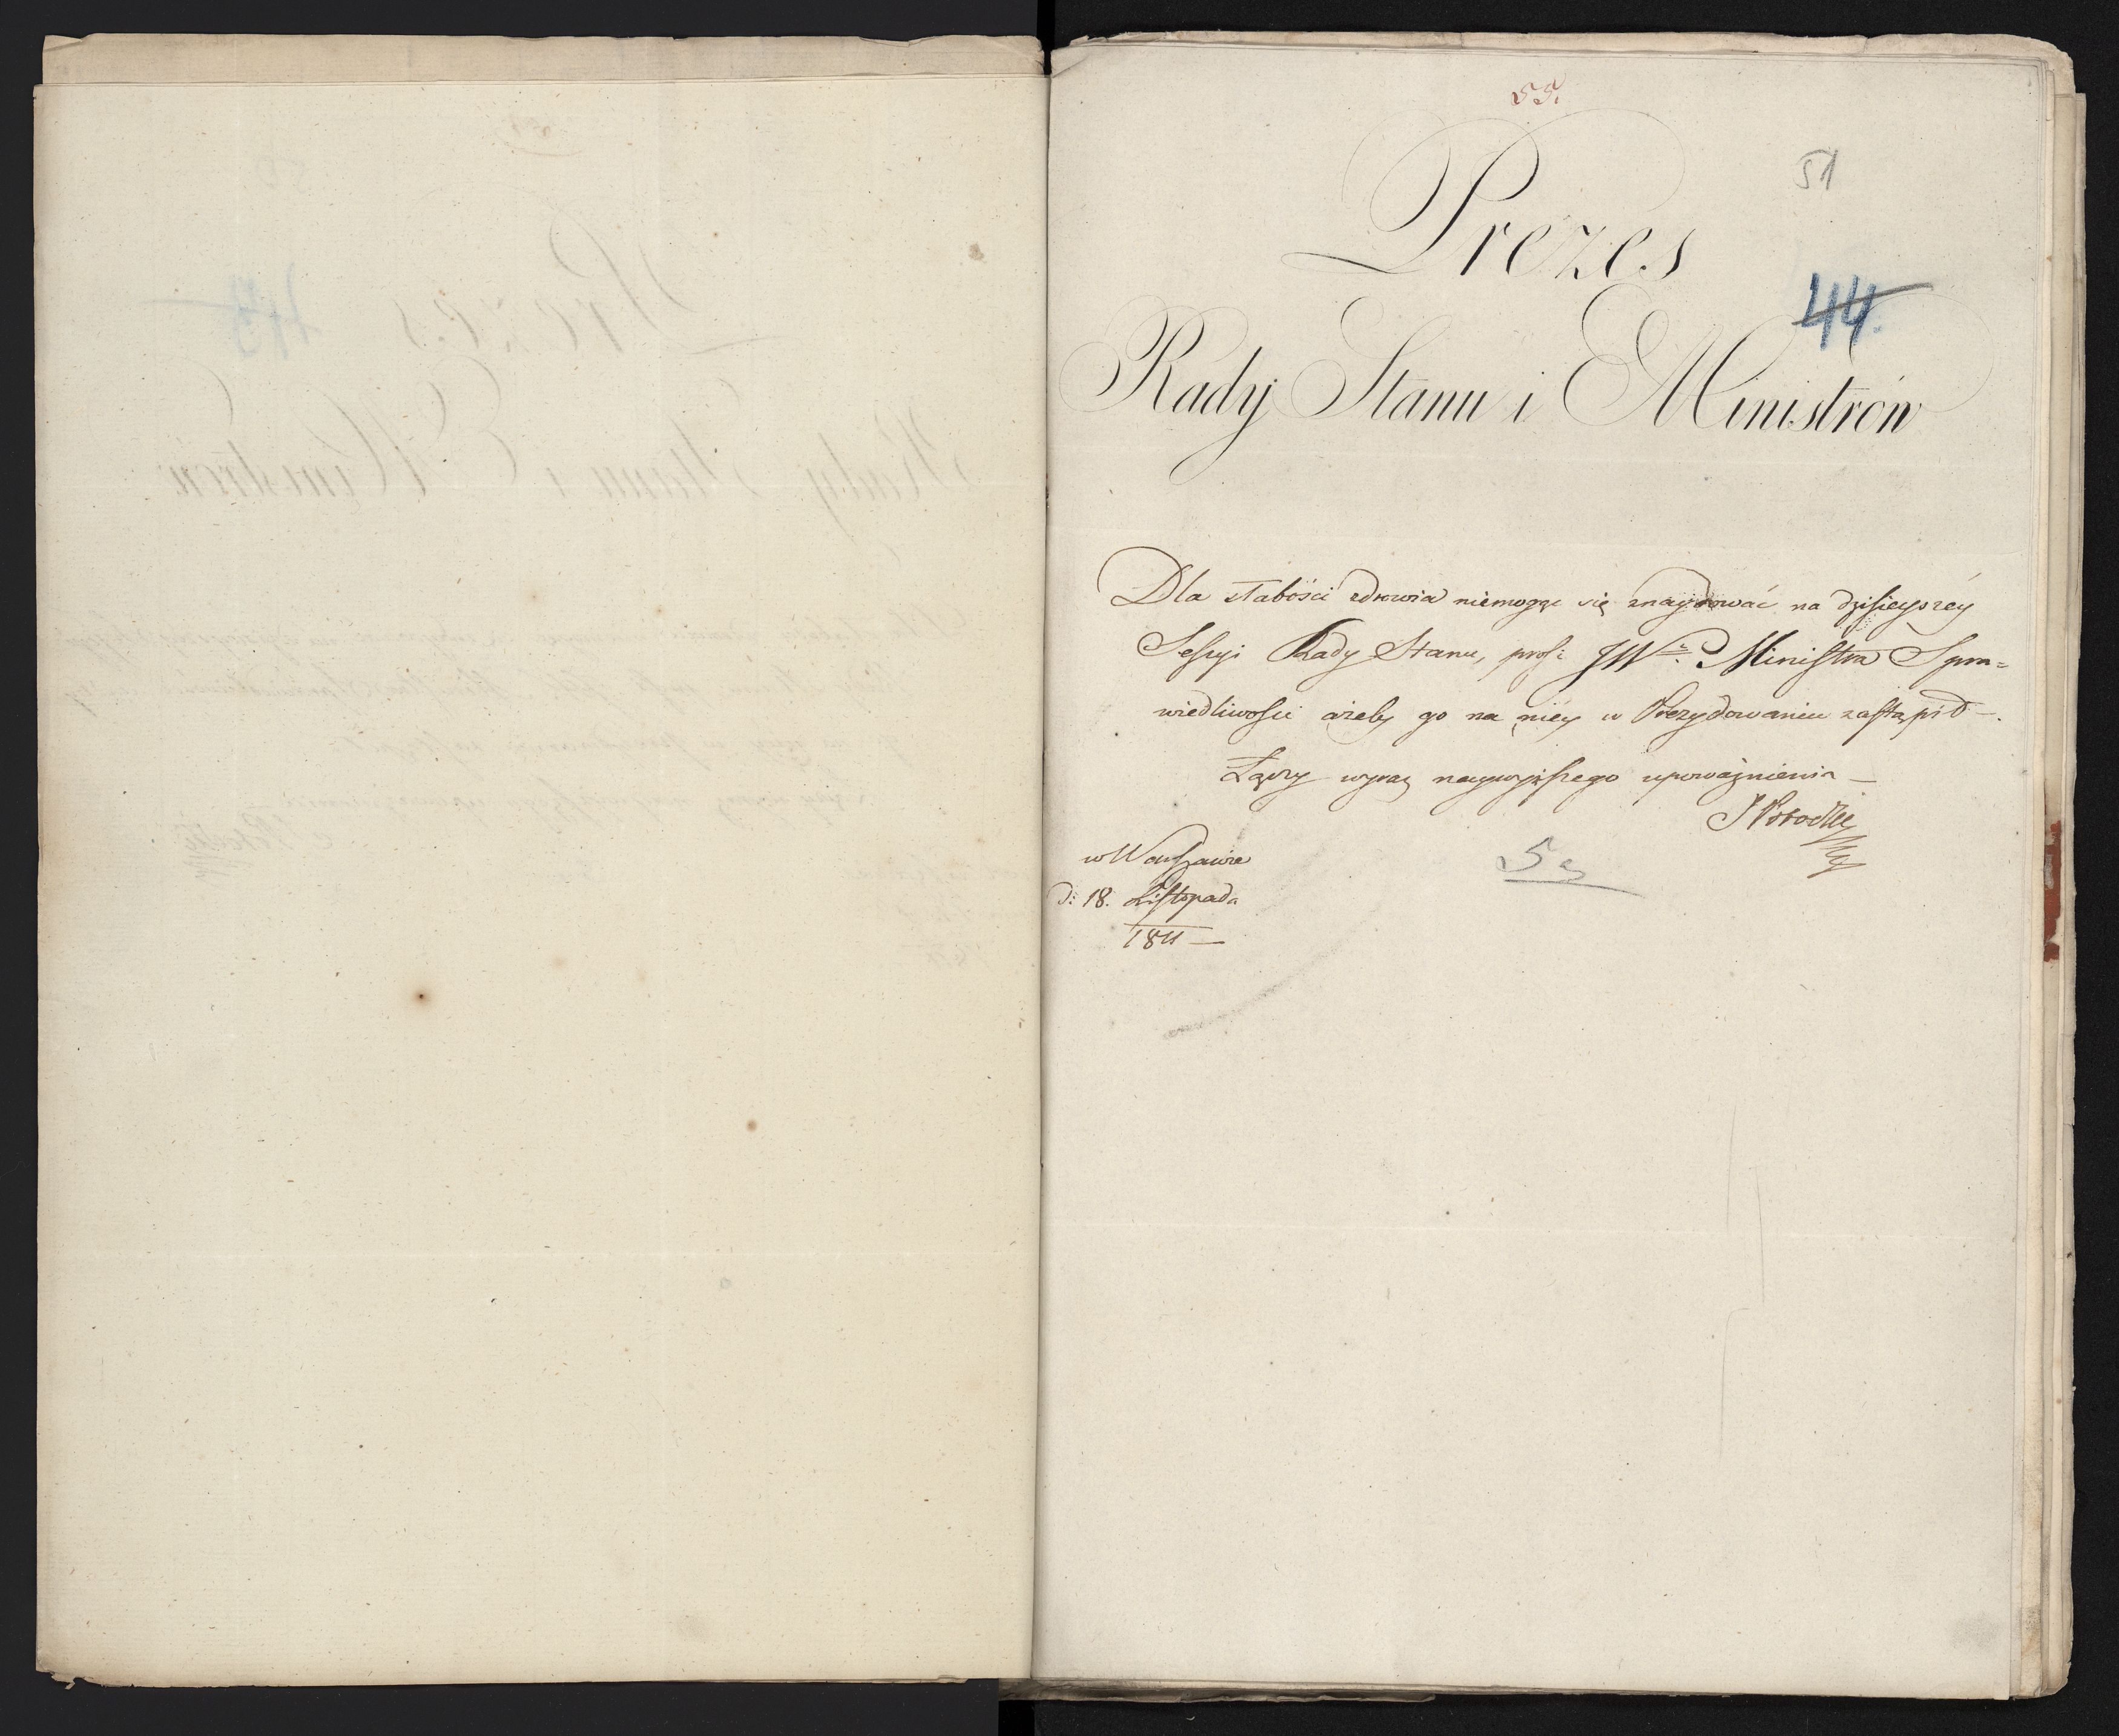 55.
51
Prezes
44.
Rady Stanu i Ministrów
Dla słabości zdrowia niemogąc się znaydować na dzisieyszéy
Sessyi Rady Stanu, prosi JWo. Ministra Spra=
wiedliwości ażeby go na niéy w Prezydowaniu zastąpił –.
Łączy wyraz naywyższego upoważnienia –
w Warszawie
d: 18. Listopada
1811 –